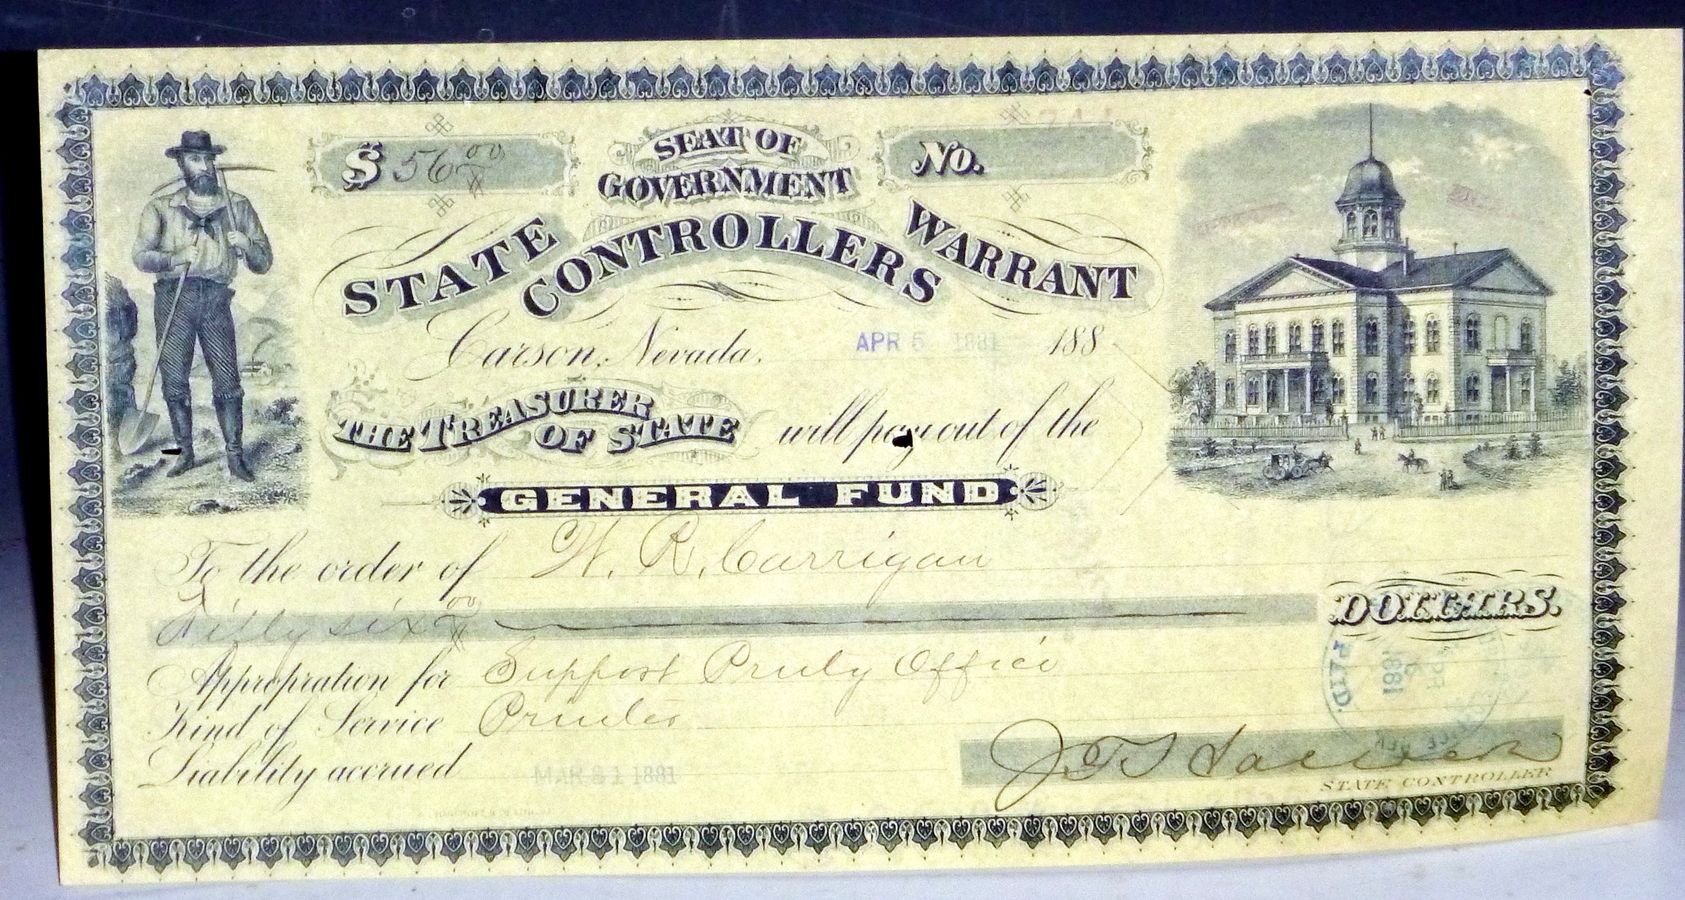 $ 56 00/x
SEAT OF GOVERNMENT
No.
STATE CONTROLLERS WARRANT
Carson, Nevada, APR 5 1881 188
THE TREASURER OF STATE will pay out of the
GENERAL FUND
To the order of W. R. Carrigan
Fifty six 00/x DOLLARS.
Appropriation for Support Prntg Office
Kind of Service Printer
Liability accrued MAR 31 1881
PAID.
1881
STATE CONTROLLER